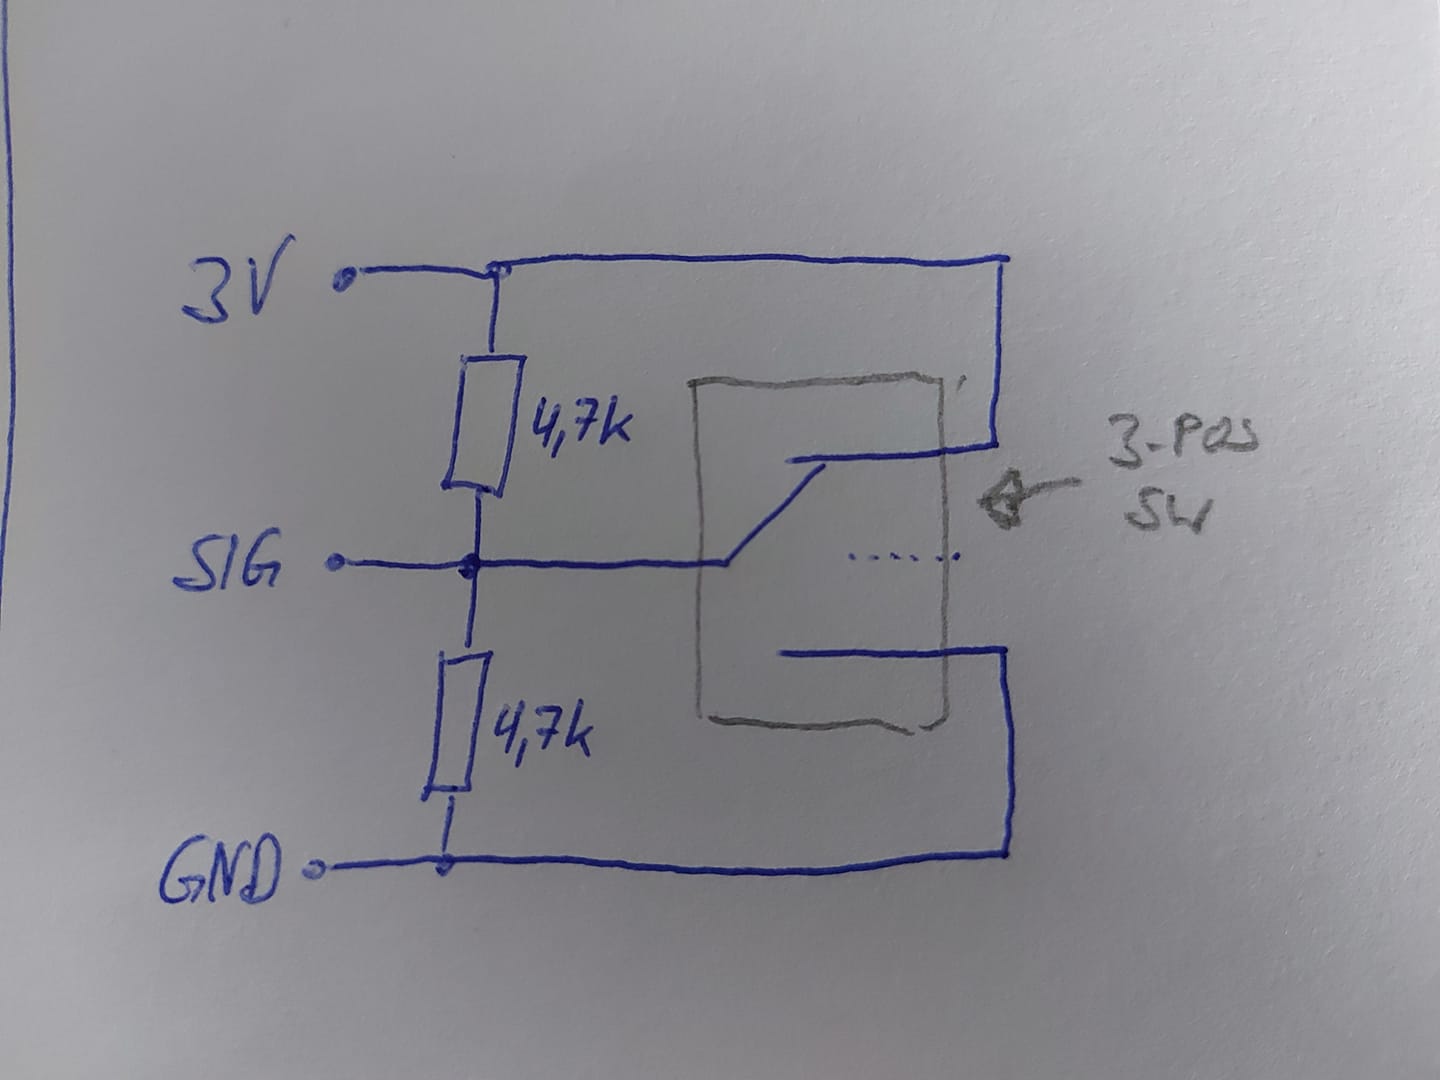 3V
4,7k
3-POS
SW
SIG
4,7k
GND